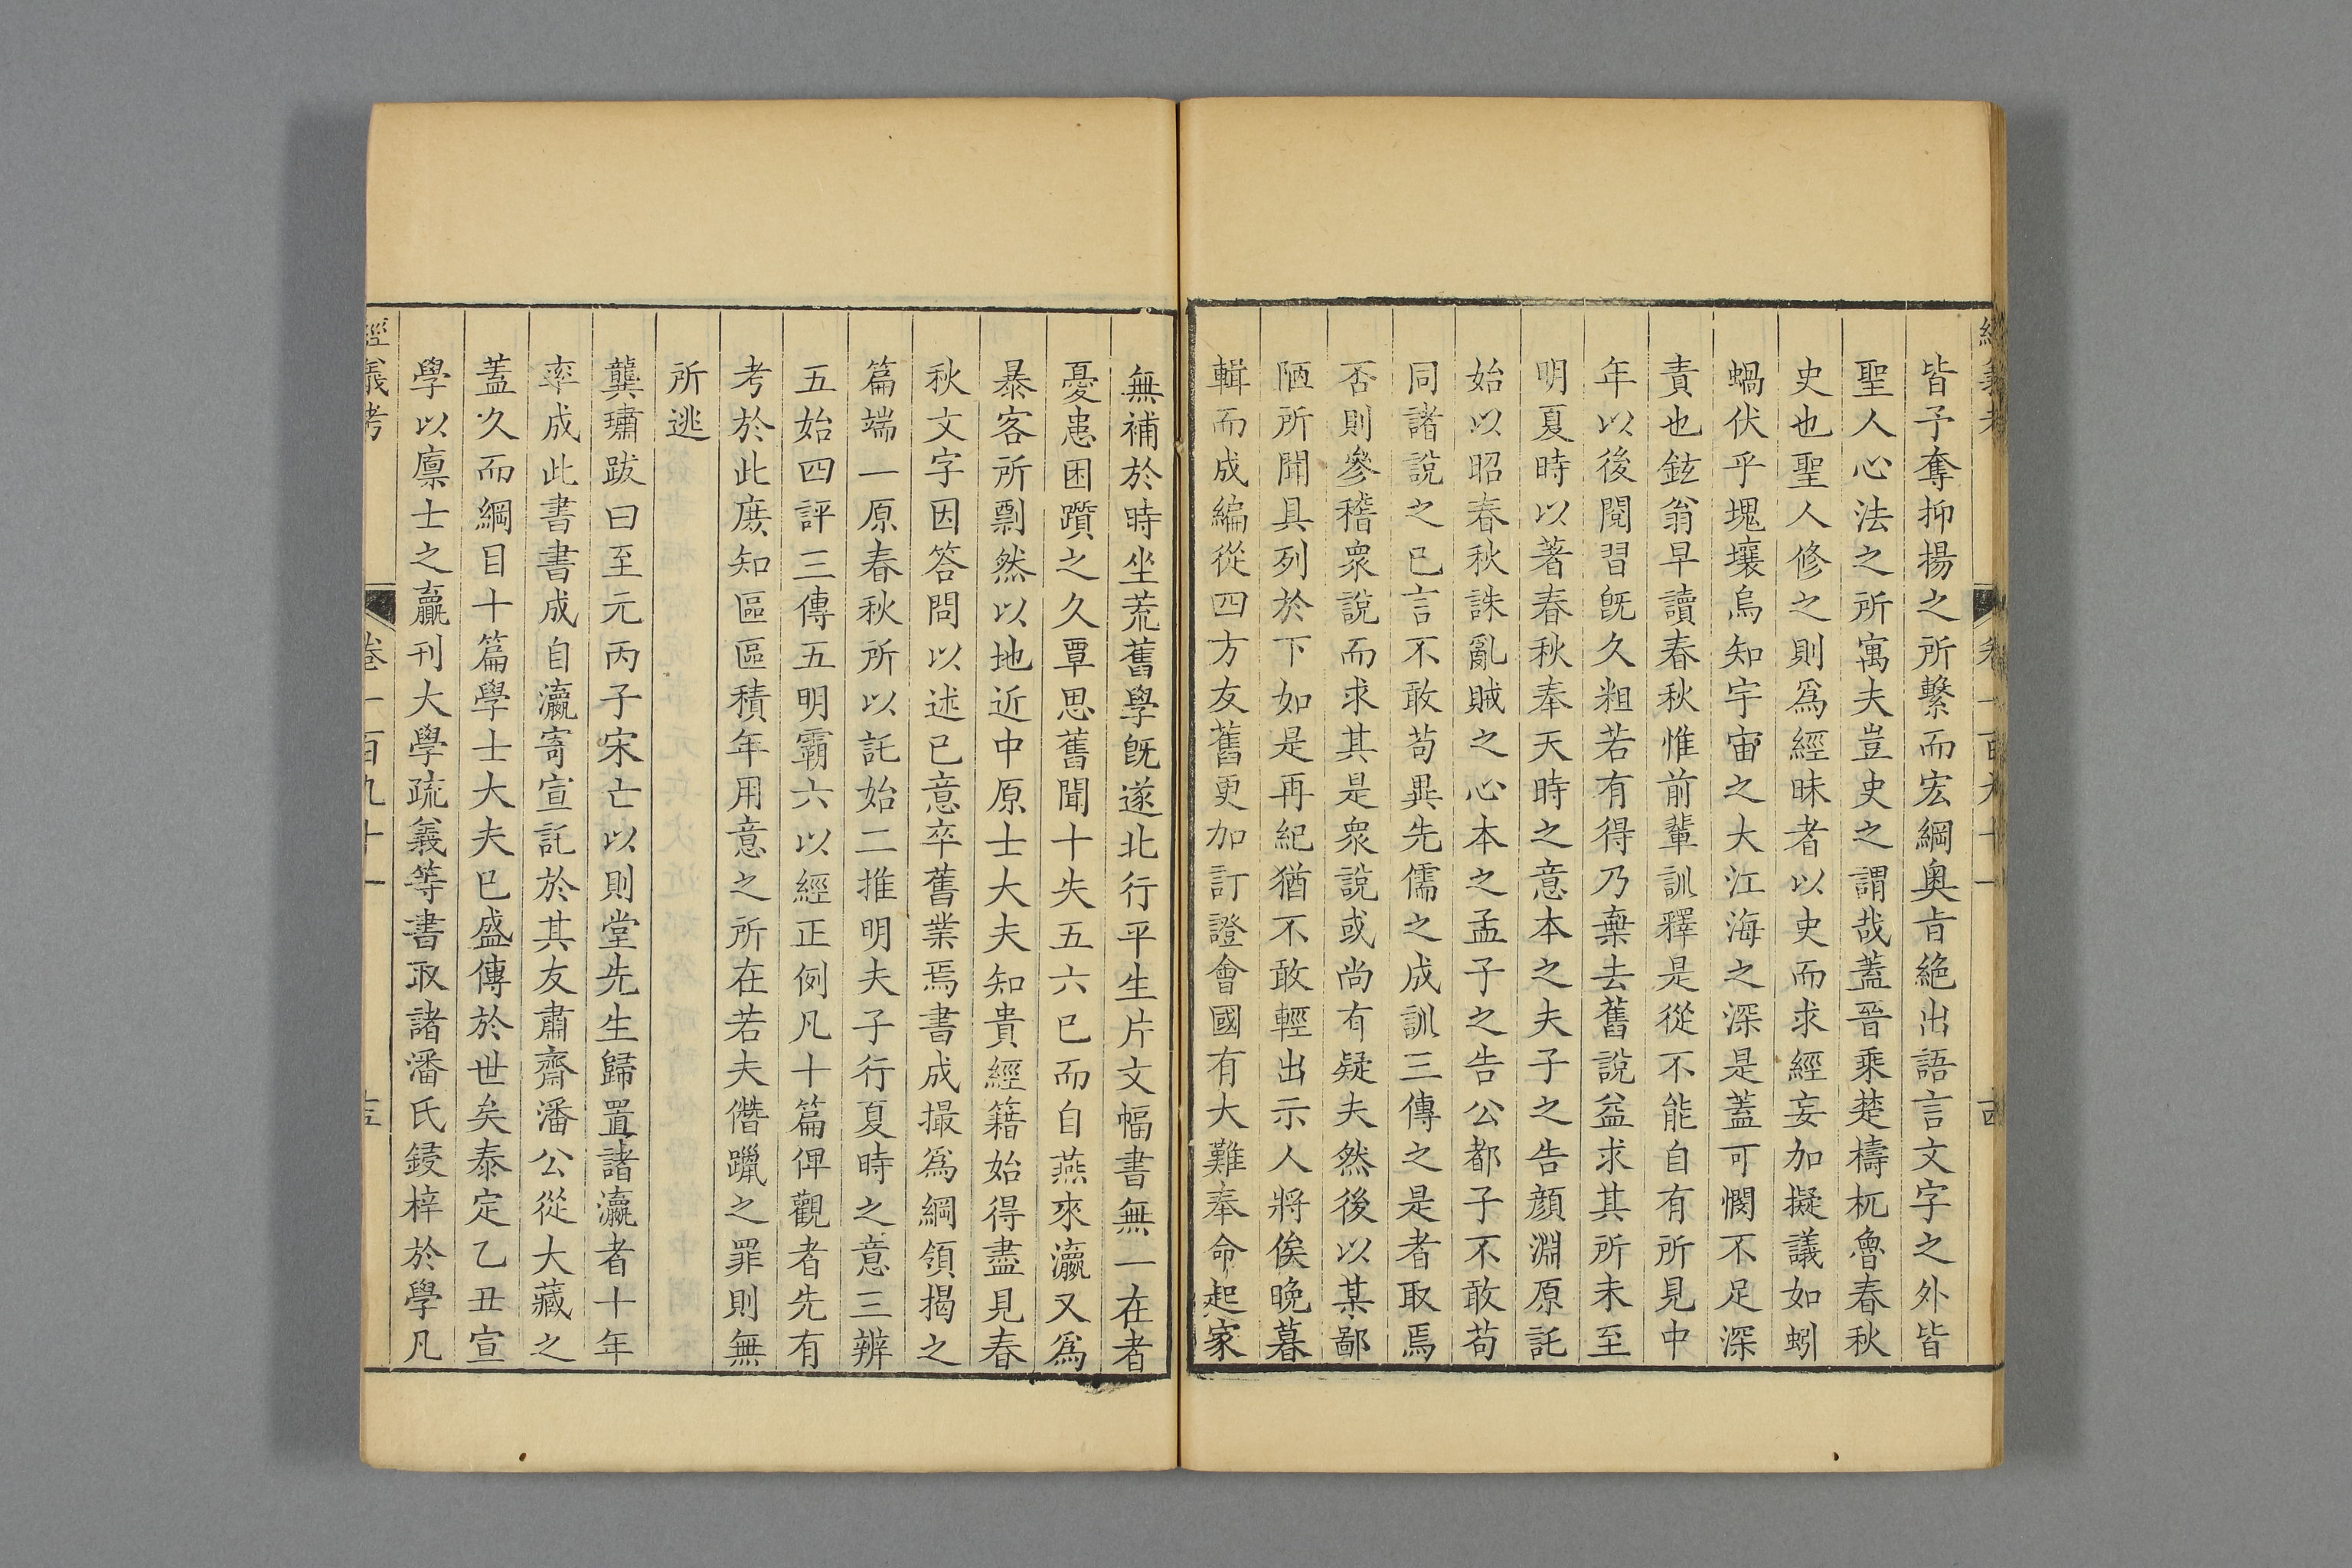 經義考 卷一百九十一 十四
皆予奪抑揚之所繫而宏綱奧旨絶出語言文字之外皆
聖人心法之所寓夫豈史之謂哉蓋晉乘楚檮杌魯春秋
史也聖人修之則爲經昧者以史而求經妄加擬議如蚓
蝸伏乎塊壤烏知宇宙之大江海之深是蓋可憫不足深
責也鉉翁早讀春秋惟前輩訓釋是從不能自有所見中
年以後閱習旣久粗若有得乃棄去舊說益求其所未至
明夏時以著春秋奉天時之意本之夫子之告顔淵原託
始以昭春秋誅亂賊之心本之孟子之告公都子不敢苟
同諸說之已言不敢苟異先儒之成訓三傳之是者取焉
否則參稽衆說而求其是衆說或尚有疑夫然後以某鄙
陋所聞具列於下如是再紀猶不敢輕出示人將俟晚暮
輯而成編從四方友舊更加訂證會國有大難奉命起家
無補於時坐荒舊學旣遂北行平生片文幅書無一在者
憂患困躓之久覃思舊聞十失五六已而自燕來瀛又爲
暴客所剽然以地近中原士大夫知貴經籍始得盡見春
秋文字因答問以述己意卒舊業焉書成撮爲綱領揭之
篇端一原春秋所以託始二推明夫子行夏時之意三辨
五始四評三傳五明霸六以經正例凡十篇俾觀者先有
考於此庶知區區積年用意之所在若夫僭躐之罪則無
所逃
龔璛跋曰至元丙子宋亡以則堂先生歸置諸瀛者十年
率成此書書成自瀛寄宣託於其友肅齋潘公從大藏之
蓋久而綱目十篇學士大夫已盛傳於世矣泰定乙丑宣
學以廩士之贏刊大學疏義等書取諸潘氏鋟梓於學凡
經義考 卷一百九十一